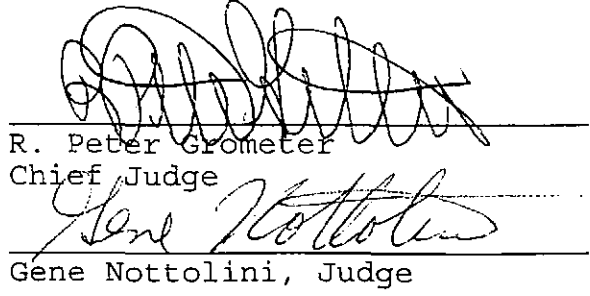 R. Peter Grometer
Chief Judge
Gene Nottolini
Gene Nottolini, Judge